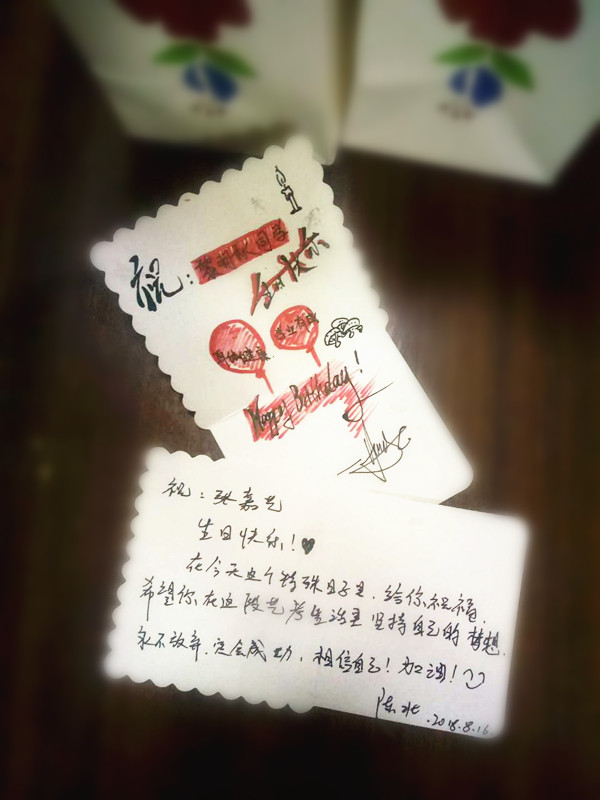 祝：
同学
生日快乐
身体健康
学业有成
Happy Birthday!
祝：张嘉艺
生日快乐！♥
在今天这个特殊日子里，给你祝福，
希望你在这段艺考生活里坚持自己的梦想，
永不放弃，定会成功，相信自己！加油！
陈北 .2018.8.16